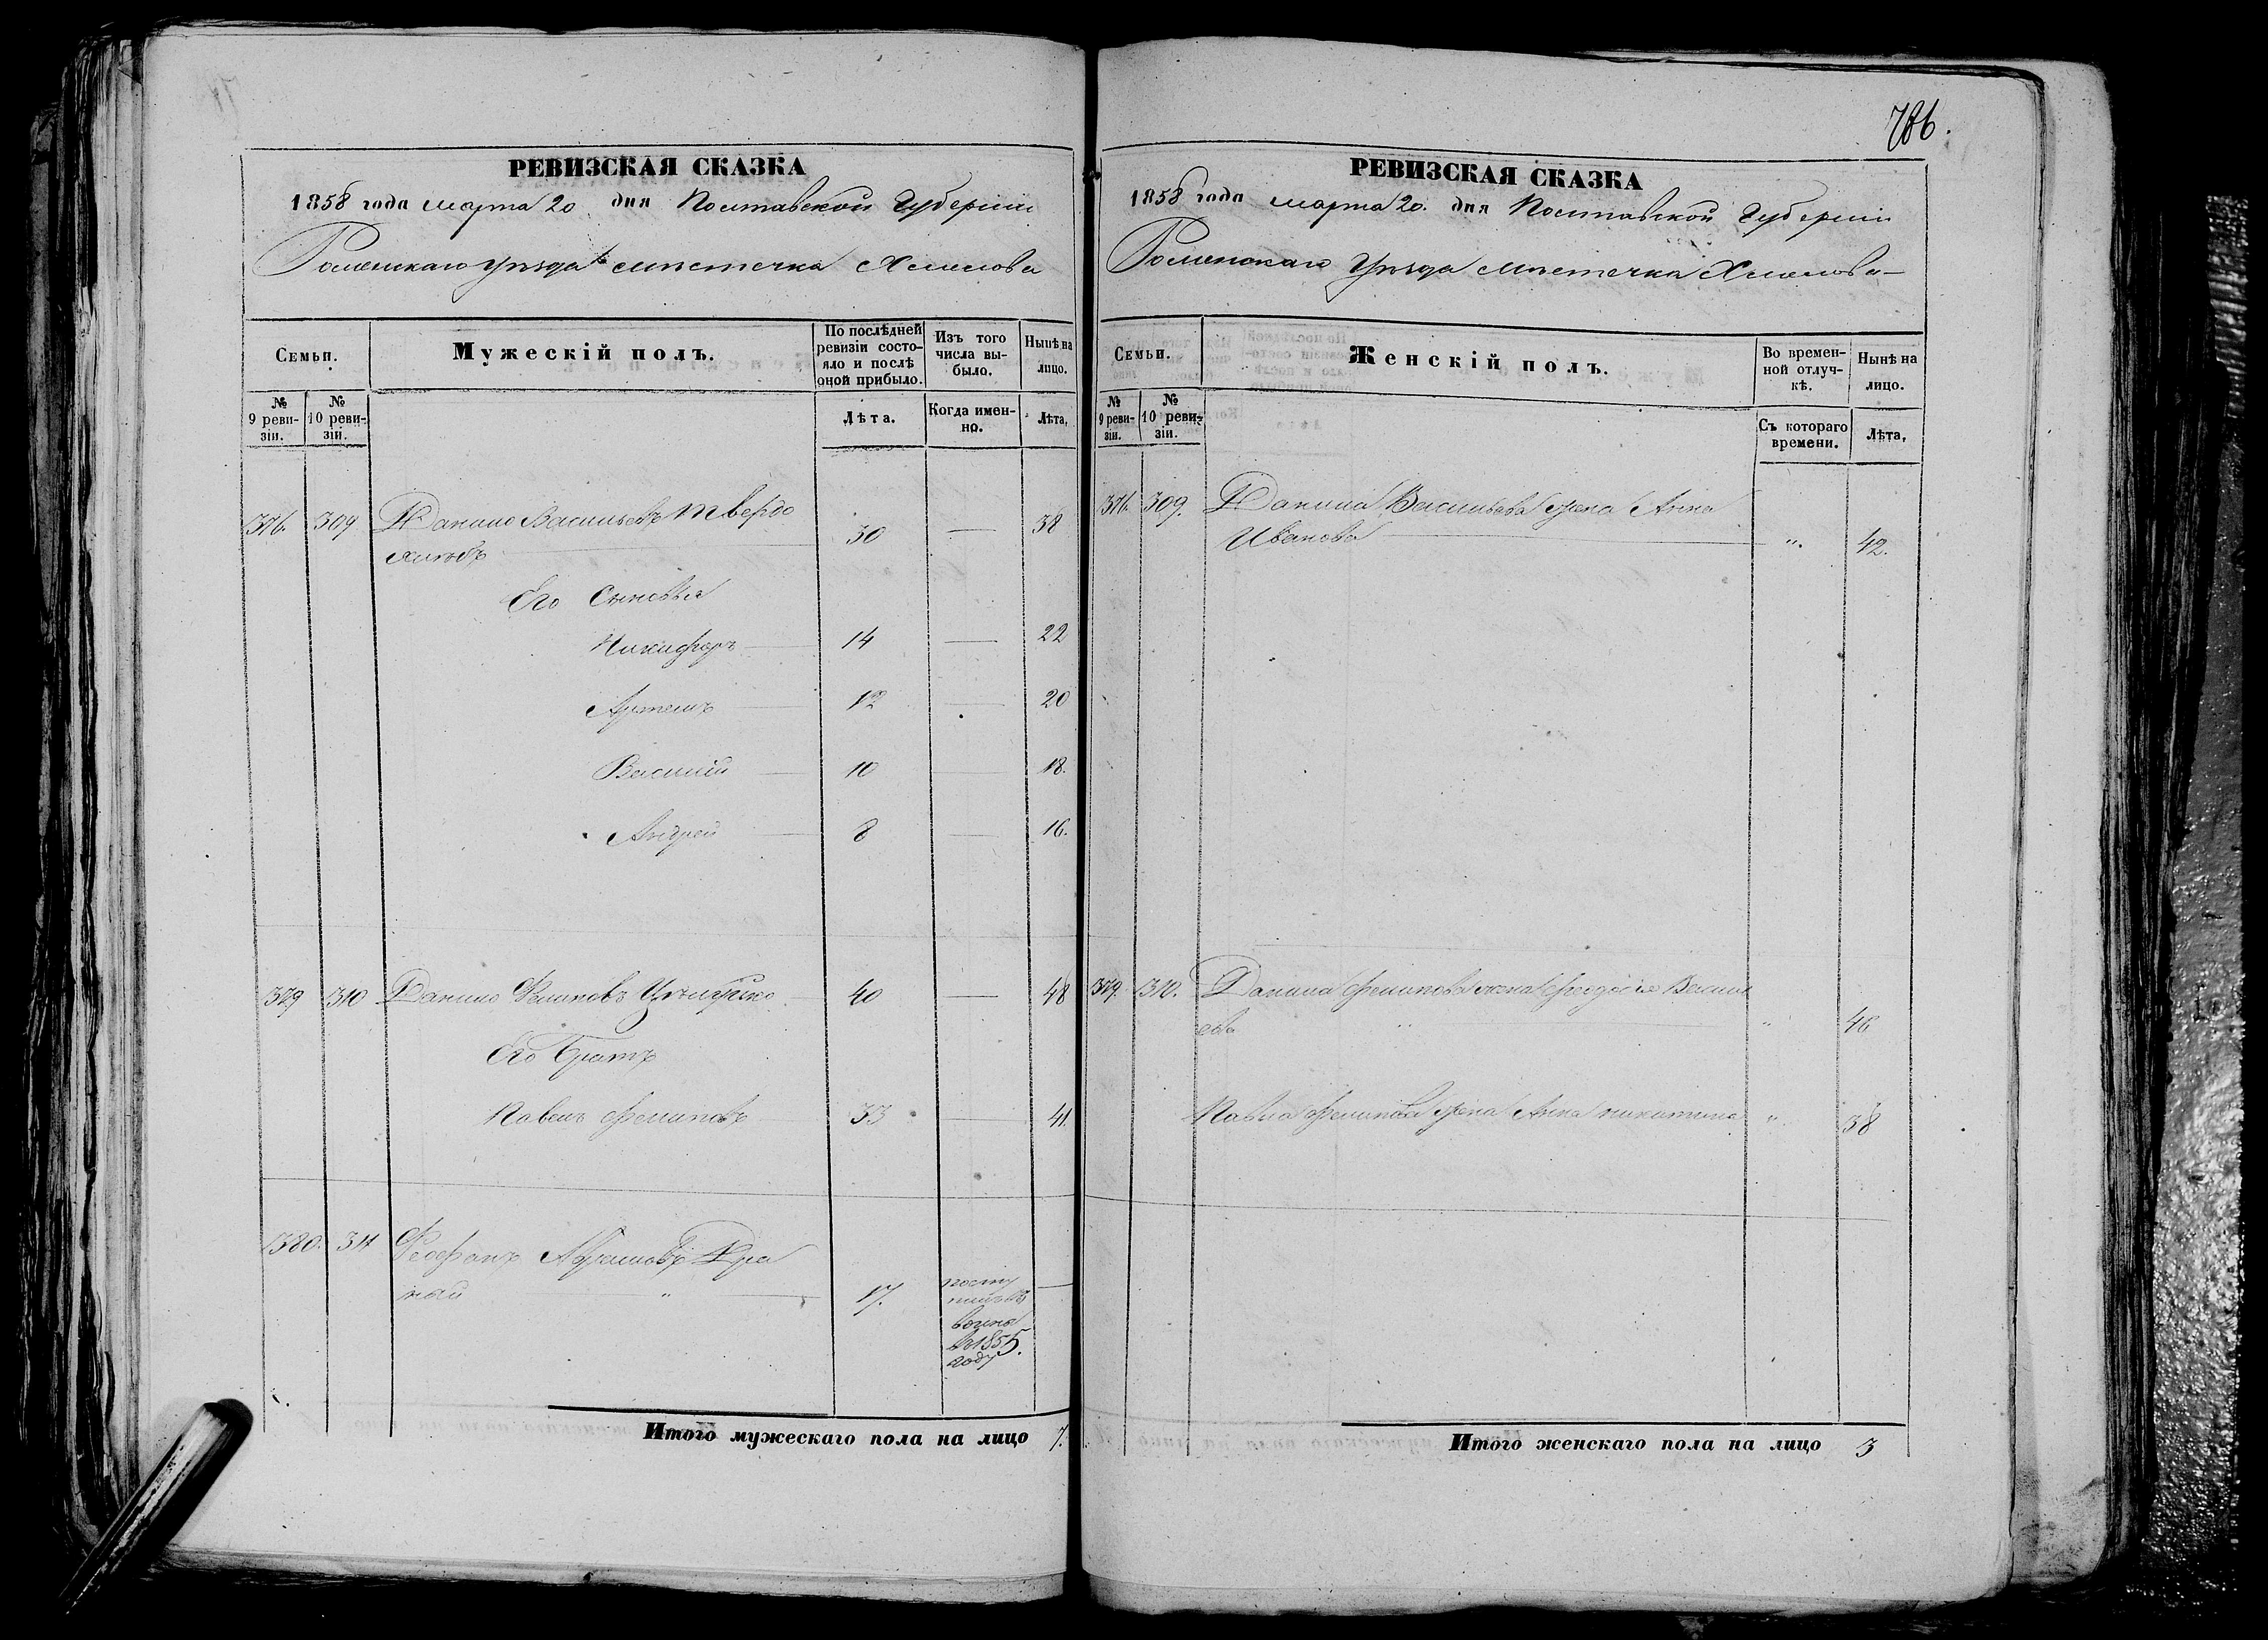 786.
РЕВИЗСКАЯ СКАЗКА
1858 года марта 20 дня Полтавской Губерніи
Роменскаго Уѣзда мѣстечка Хмелова
Семьи.
Мужескій полъ.
По послѣдней ревизіи состояло и послѣ оной прибыло.
Изъ того числа выбыло.
Нынѣ на лицо.
№ 9 ревизіи.
№ 10 ревизіи.
Лѣта.
Когда именно.
Лѣта.
376. 309 Данило Васильевъ Твердо
хлѣбъ 30 — 38
Его Сыновья
Никифоръ — 14 — 22
Артемъ — 12 — 20
Василій — 10 — 18.
Андрей — 8 — 16.
379 310 Данило Филиповъ 40 — 48
Его Братъ
Павелъ Филиповъ 33 — 41.
380. 311 Феофанъ Кра
ный " 17. посту —
пилъ въ
въ 1855
году
Итого мужескаго пола на лицо 7.
РЕВИЗСКАЯ СКАЗКА
1858 года марта 20. дня Полтавской Губерніи
Роменскаго Уѣзда мѣстечка Хмелова —
Семьи.
Женскій полъ.
Во временной отлучкѣ.
Нынѣ на лицо.
№ 9 ревизіи.
№ 10 ревизіи.
Съ котораго времени.
Лѣта.
376. 309. Данила Васильева жена Анна
Иванова — ". 42.
379. 310. Данила Филипова жена Феодосія Василь
ева " " 46
Павла Филипова жена Анна Никитина " 38
Итого женскаго пола на лицо 3